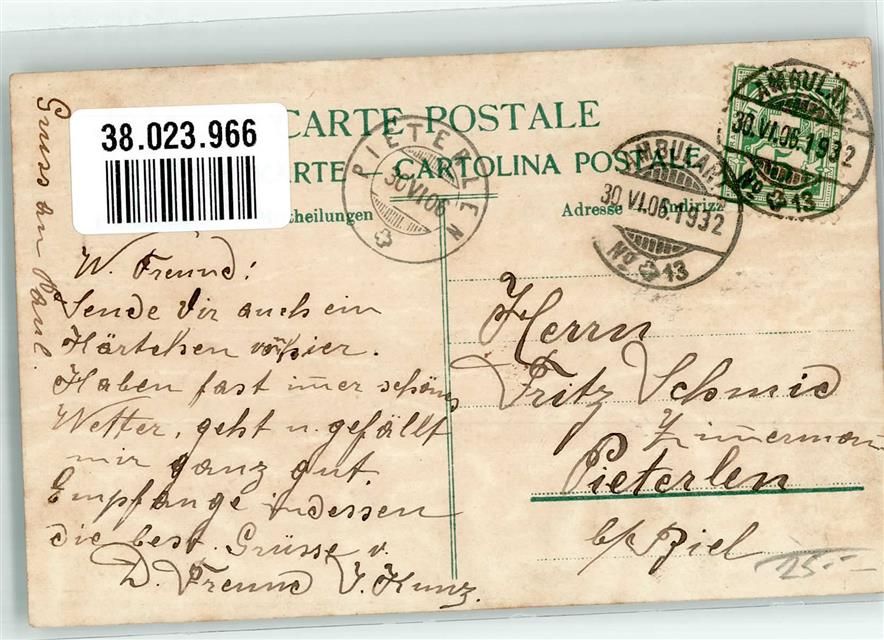 38.023.966
CARTE POSTALE
ARTE — CARTOLINA POSTALE
theilungen
Adresse
Indirizz
PIETERLEN
30 VI 06
AMBULANT
30.VI.06.1932
No 13
AMBULANT
30.VI.06.1932
No 13
5
Gruss an Paul.
W. Freund!
Sende Dir auch ein
Kärtchen von hier.
Haben fast im̅er schönes
Wetter, geht u. gefällt
mir ganz gut.
Empfange indessen
die best. Grüsse v.
D. Freund J. Kunz.
Herrn
Fritz Schmid
Zim̅erman
Pieterlen
b/ Biel
25.-